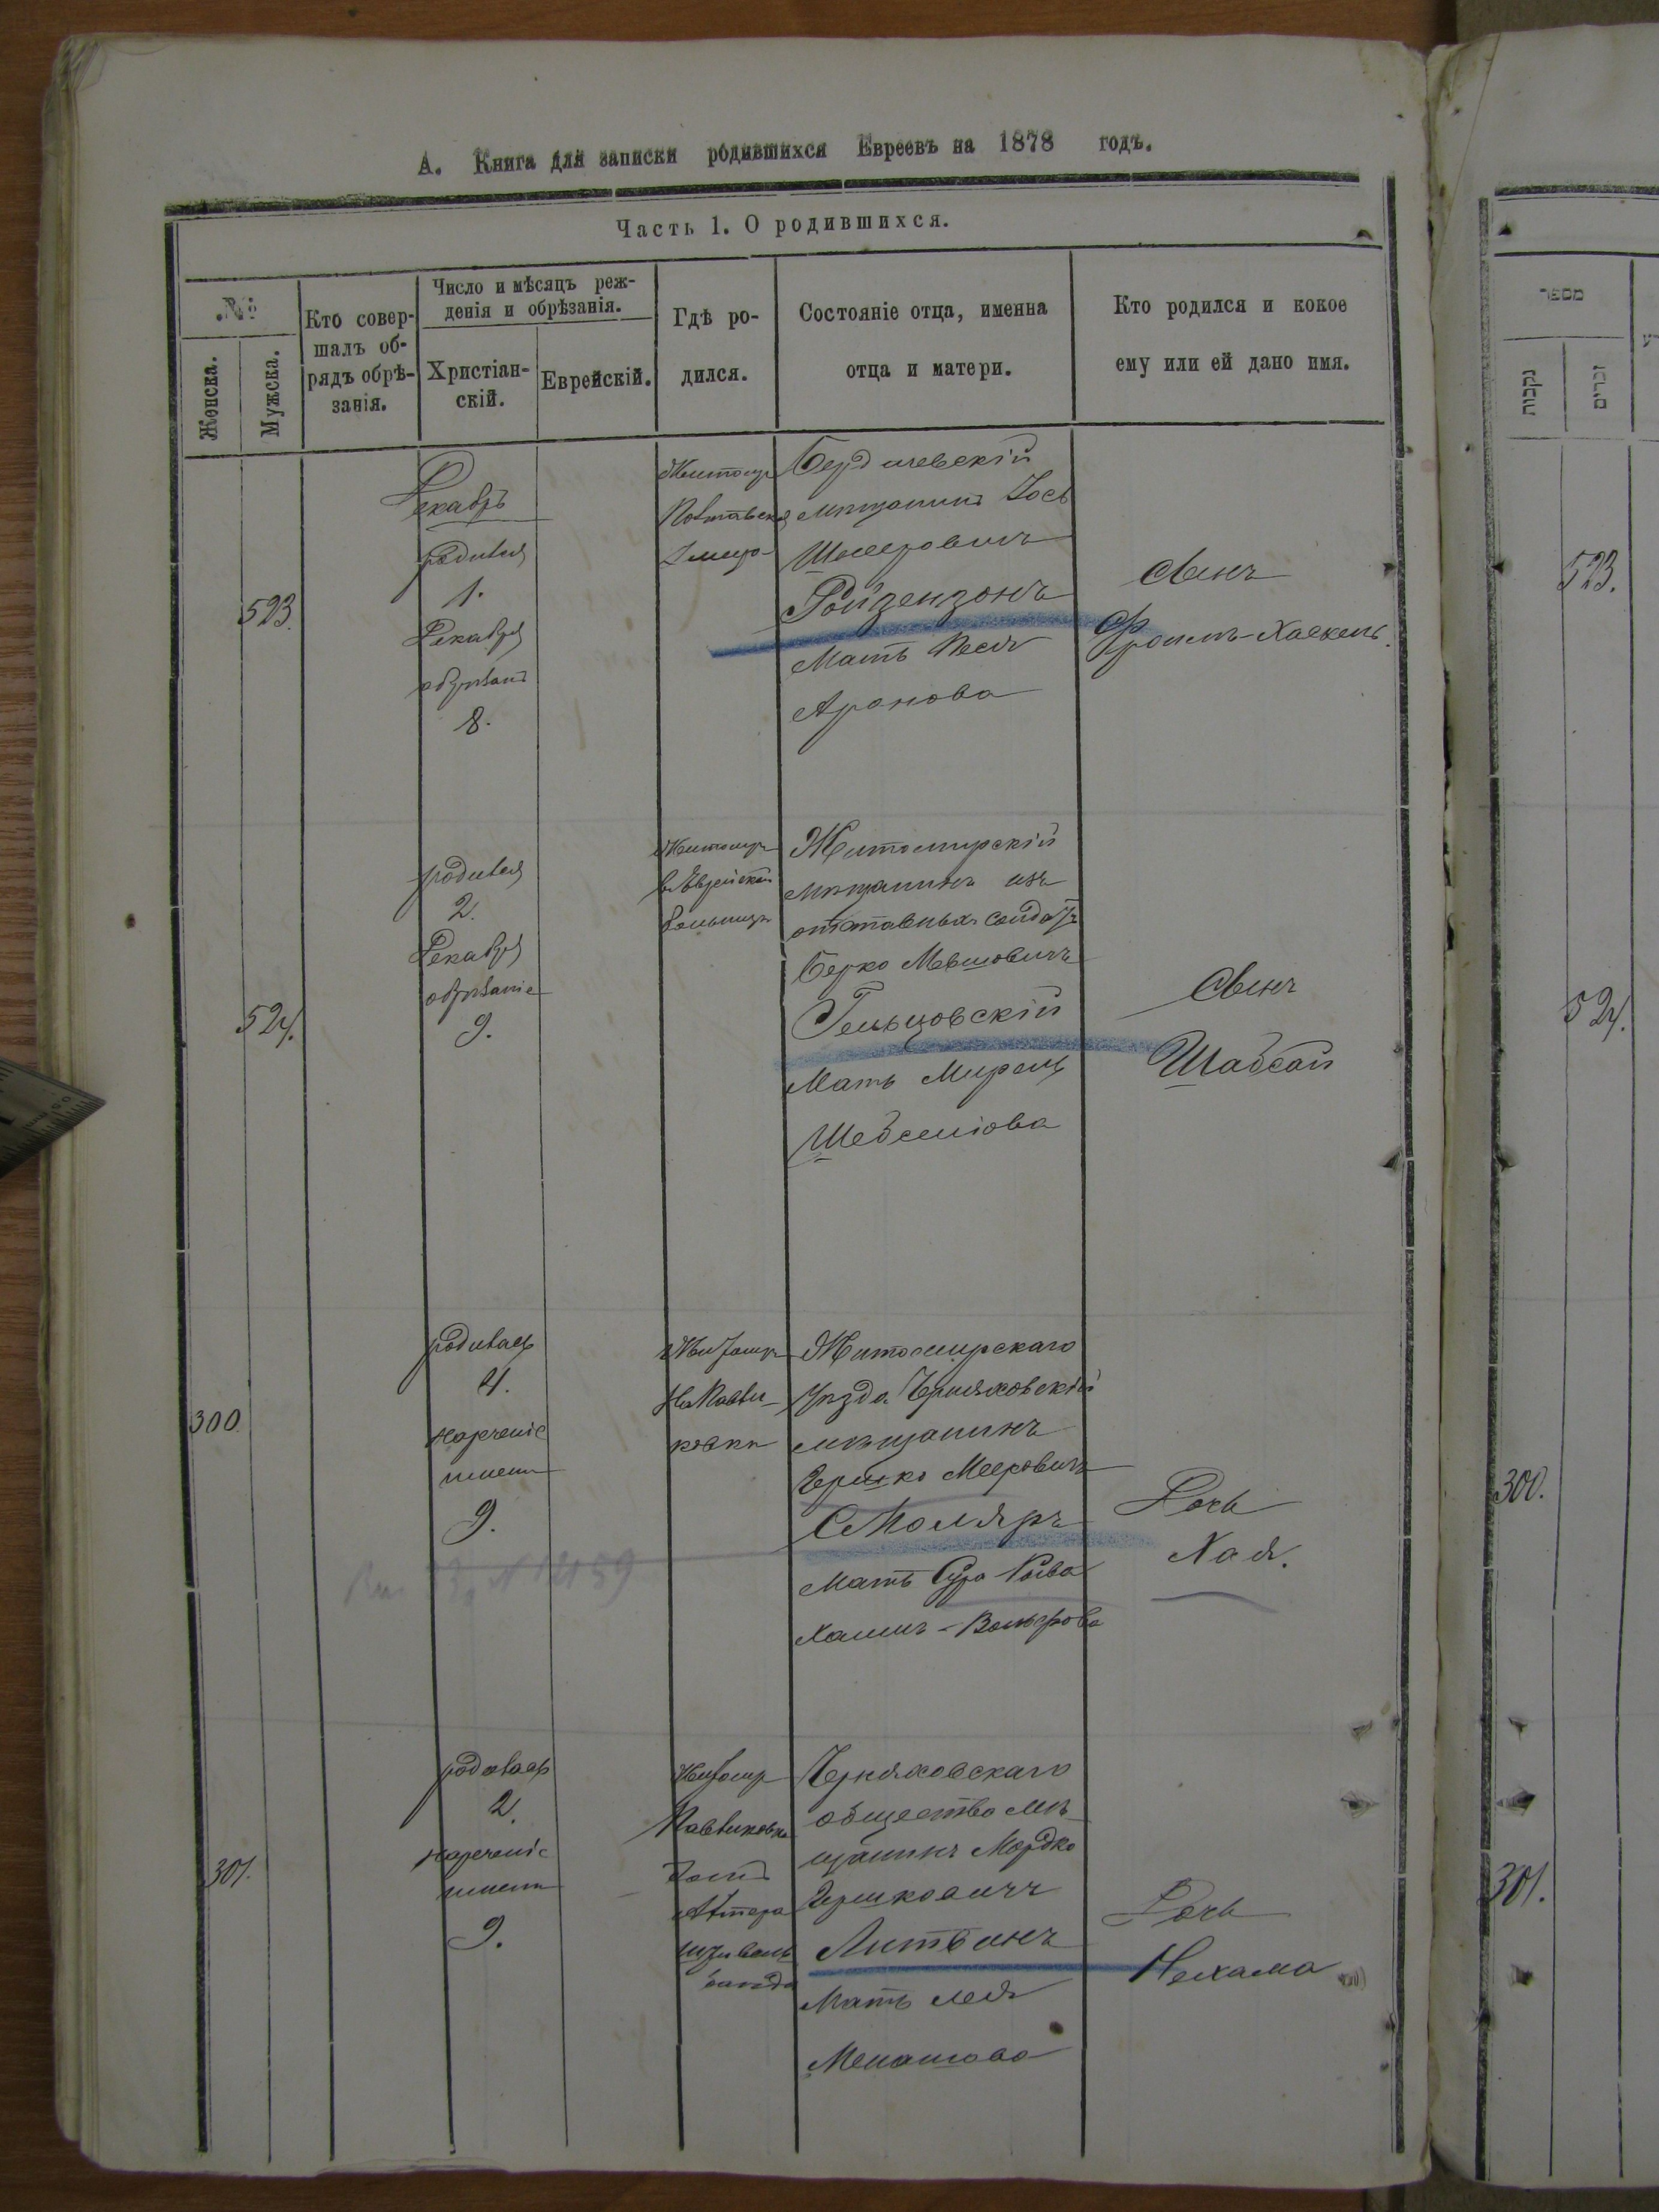 А. Книга для записки родившихся Евреевъ на 1878 годъ.
Часть 1. О родившихся.
№
Женска.
Мужска.
Кто совер-
шалъ об-
рядъ обрѣ-
занія.
Число и мѣсяцъ реж-
денія и обрѣзанія.
Христіан-
скій.
Еврейскій.
Гдѣ ро-
дился.
Состояніе отца, именна
отца и матери.
Кто родился и кокое
ему или ей дано имя.
523.
Декабрь
родился
1.
Декабря
обрѣзанъ
8.
Житомир
Бердичевскій
мѣщанинъ Іось
Шмеровичъ
Ройзензонъ
Мать Песя
Аронова
Сынъ
Фроимъ-Хаскель.
524.
родился
2.
Декабря
обрѣзаніе
9.
Житомиръ
в Еврейской
больницѣ
Житомирскій
мѣщанинъ изъ
отставныхъ солдатъ
Берко Мевшовичъ
Гельцовскій
Мать Мирель
Сынъ
Шабсай
300
родилась
4.
нареченіе
имени
9.
Житомиръ
На Павли-
ковки
Житомирскаго
Уѣзда Черняховскій
мѣщанинъ
Гершко Мееровичъ
Столяръ
Мать Сура Рыва
Хаимъ-Вольфова
Дочь
Хая.
301.
родилась
2.
нареченіе
имени
9.
Житомир
Павликовка
домъ
Черняховскаго
общества мѣ-
щанинъ Мордко
Гершковичъ
Литвинъ
Мать Лея
Менашова
Дочь
Нехама
מספר
נקבות
זכרים
523.
524.
300.
301.